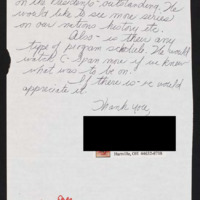 on the Presidents - outstanding. We
would like to see more series
on our nations history etc.
Also - is there any
type of program schedule. We would
watch C-Span more if we knew
what was to be on.
If there is - we would
appreciate it.
Thank you,